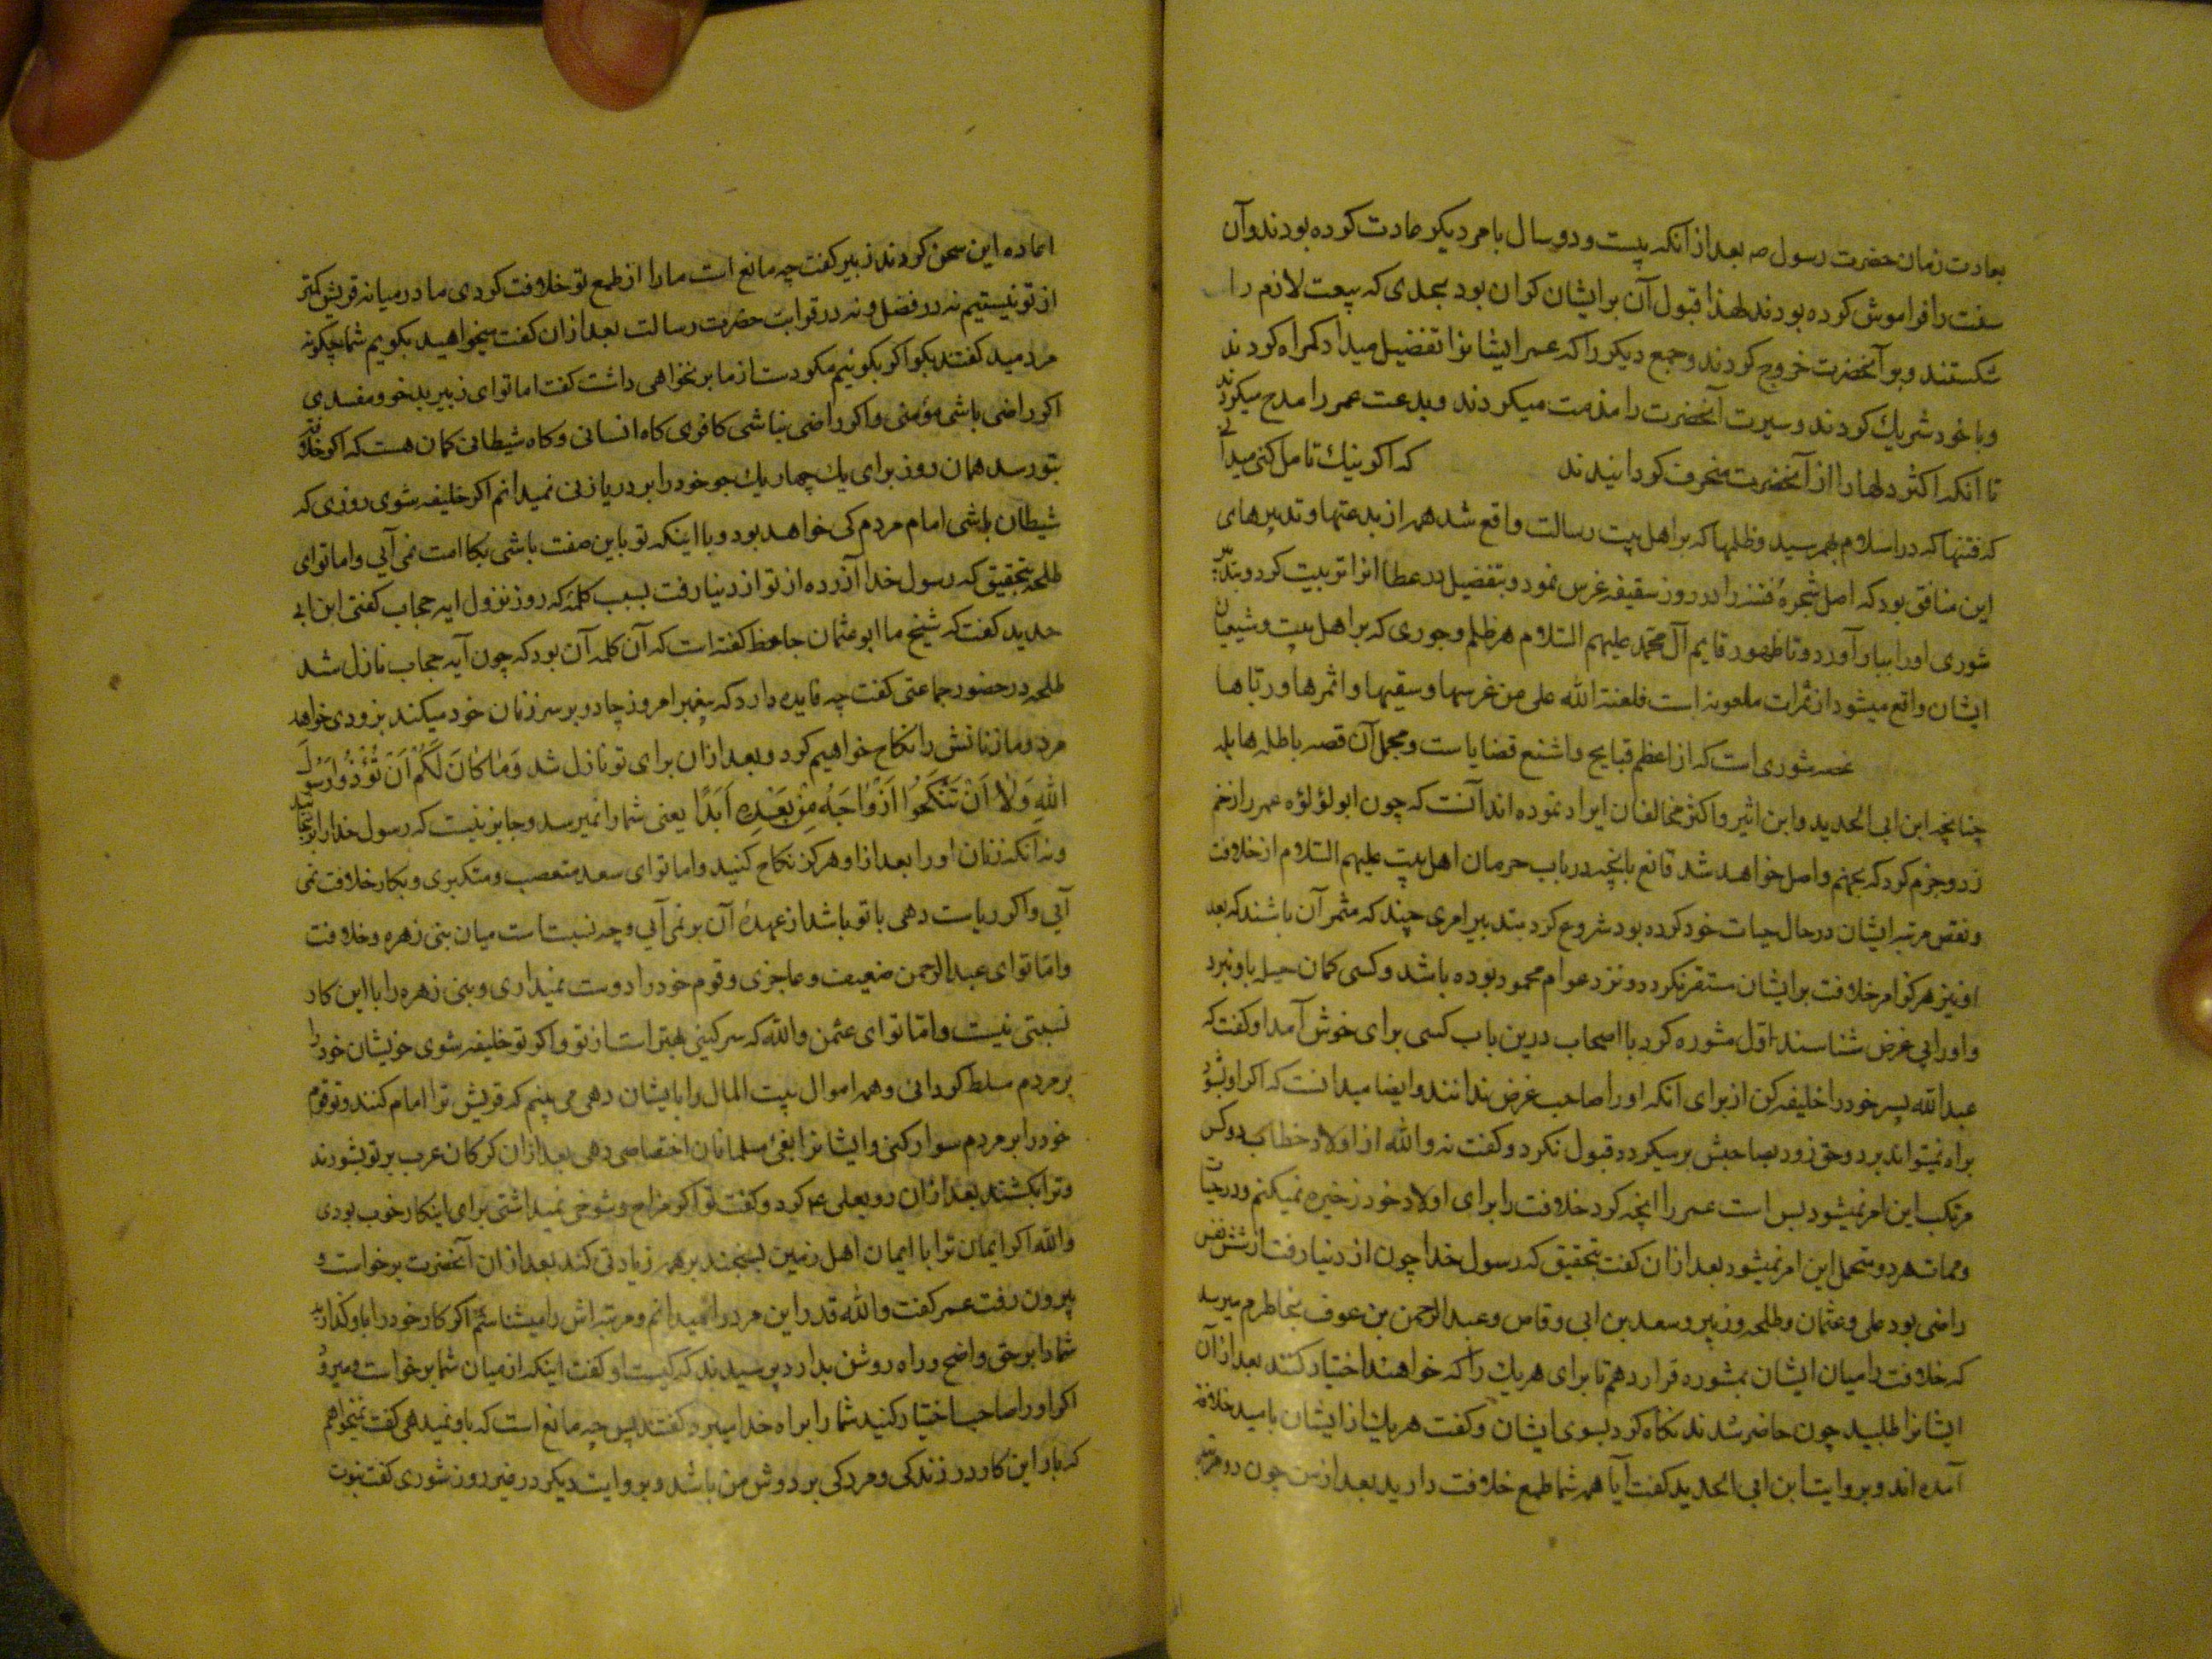 بعادت زمان حضرت رسول صه بعد از انکه بیست و دو سال بامر دیکر عادت کرده بودند و آن
سنت را فراموش کرده بودند لهذا قبول آن بر ایشان کران بود بحدی که بیعت لازم را
شکستند و بر آنحضرت خروج کردند و جمع دیکر را که عمر ایشانرا تفضیل میداد کمراه کردند
و با خود شریک کردند و سیرت آنحضرت را مذمت میکردند و بدعت عمر را مدح میکردند
تا آنکه اکثر دلها را از آنحضرت منحرف کردانیدند که اکر نیک تامل کنی میدانی
که فتنها که در اسلام بهم رسید و ظلمها که بر اهل بیت رسالت واقع شد همه از بدعتها و تدبیرهای
این منافق بود که اصل شجرهٔ فتنه را در روز سقیفه غرس نمود و بتفضیل در عطا انرا تربیت کرد و بتدبیر
شوری او را ببار آورد و تا ظهور قایم آل محمّد علیهم السّلام هر ظلم و جوری که بر اهل بیت و شیعیان
ایشان واقع میشود از ثمرات ملعونه است فلعنة الله علی من غرسها و سقیها و اثمرها و رباها
قصه شوری است که از اعظم قبایح و اشنع قضایا است و مجمل آن قصه باطله هایله
چنانچه ابن ابی الحدید و ابن اثیر و اکثر مخالفان ایراد نموده اند آنست که چون ابولؤلؤه عمر را زخم
زد و جزم کرد که بجهنم واصل خواهد شد قانع بانچه در باب حرمان اهل بیت علیهم السّلام از خلافت
و نقص مرتبه ایشان در حال حیات خود کرده بود شروع کرد بتدبیر امری چند که مثمر آن باشند که بعد
او نیز هرکز امر خلافت بر ایشان مستقر نکردد و نزد عوام محمود بوده باشد و کسی کمان حیله باو نبرد
و او را بی غرض شناسند اوّل مشوره کرد با اصحاب درین باب کسی برای خوش آمد او کفت که
عبدالله پسر خود را خلیفه کن از برای انکه او را صاحب غرض ندانند و ایضا میدانست که اکر او بشود
براه نمیتواند برد و حق زود بصاحبش برمیکردد قبول نکرد و کفت نه والله از اولاد خطاب دو کس
مرتکب این امر نمیشود بس است عمر را انچه کرد خلافت را برای اولاد خود ذخیره نمیکنم و در حیات
و ممات هر دو متحمل این امر نمیشود بعد ازان کفت بتحقیق که رسول خدا چون از دنیا رفت از شش نفس
راضی بود علی و عثمان و طلحه و زبیر و سعد بن ابی وقاص و عبدالرحمن بن عوف بخاطرم میرسد
که خلافت را میان ایشان بمشوره قرار دهم تا برای هر یک را که خواهند اختیار کنند بعد ازان
ایشانرا طلبید چون حاضر شدند نکاه کرد بسوی ایشان و کفت هر یک از ایشان بامید خلافة
آمده اند و بروایت ابن ابی الحدید کفت آیا همه شما طمع خلافت دارید بعد از من چون دو مرتبه
اعاده این سخن کردند زبیر کفت چه مانع است ما را از طمع تو خلافت کردی ما در میانه قریش کمتر
از تو نیستیم نه در فضل و نه در قرابت حضرت رسالت بعد ازان کفت میخواهید بکویم شما چکونه
مردمید کفتند بکو اکر بکوئیم مکو دست از ما بر نخواهی داشت کفت اما تو ای زبیر بدخو و مفسدی
اکر راضی باشی مؤمنی و اکر راضی نباشی کافری کاه انسانی و کاه شیطانی کمان هست که اکر خلافت
بتو رسد همان روز برای یک چهار یک جو خود را بر دریا زنی نمیدانم اکر خلیفه شوی روزی که
شیطان باشی امام مردم کی خواهد بود و با اینکه تو باین صفت باشی بکار امامت نمی آیی و اما تو ای
طلحه بتحقیق که رسول خدا آزرده از تو از دنیا رفت بسبب کلمهٔ که روز نزول ایه حجاب کفتی ابن ابی
حدید کفت که شیخ ما ابو عثمان جاحظ کفته است که آن کلمه آن بود که چون آیه حجاب نازل شد
طلحه در حضور جماعتی کفت چه فایده دارد که پیغمبر امروز چادر بر سر زنان خود میکند بزودی خواهد
مرد و ما زنانش را نکاح خواهیم کرد و بعد ازان برای تو نازل شد وَمٰا کٰانَ لَکُمْ اَنْ تُؤْذُوا رَسُولَ
اللّٰهِ وَلٰا اَنْ تَنْکِحُوا اَزْوٰاجَهُ مِنْ بَعْدِهِ اَبَدًا یعنی شما را نمیرسد و جایز نیست که رسول خدا را برنجانید
و نه انکه زنان او را بعد از او هرکز نکاح کنید و اما تو ای سعد متعصب و متکبری و بکار خلافت نمی
آیی و اکر ریاست دهی با تو باشد از عهدهٔ آن بر نمی آیی و چه نسبتست میان بنی زهره و خلافت
و امّا تو ای عبدالرحمن ضعیف و عاجزی و قوم خود را دوست میداری و بنی زهره را با این کار
نسبتی نیست و امّا تو ای عثمن والله که سرکینی بهتر است از تو و اکر تو خلیفه شوی خویشان خود را
بر مردم مسلط کردانی و همه اموال بیت المال را بایشان دهی می بینم که قریش ترا امام کنند و تو قوم
خود را بر مردم سوار کنی و ایشانرا بفیٔ مسلمانان اختصاصی دهی بعد ازان کرکان عرب بر تو بشورند
و ترا بکشند بعد ازان رو بعلی ع کرد و کفت تو اکر مزاح و شوخی نمیداشتی برای اینکار خوب بودی
والله اکر ایمان ترا با ایمان اهل زمین بسنجند بر همه زیادتی کند بعد ازان آنحضرت برخواست و
بیرون رفت عمر کفت والله قدر این مرد را میدانم و مرتبه اش را میشناسم اکر کار خود را باو کذارید
شما را بر حق واضح و راه روشن بدارد پرسیدند که کیست او کفت اینکه از میان شما برخواست و میرود
اکر او را صاحب اختیار کنید شما را براه خدا میبرد کفتند پس چه مانع است که باو نمیدهی کفت نمیخواهم
که بار این کار در زندکی و مردکی بر دوش من باشد و بروایت دیکر در غیر روز شوری کفت نبوت